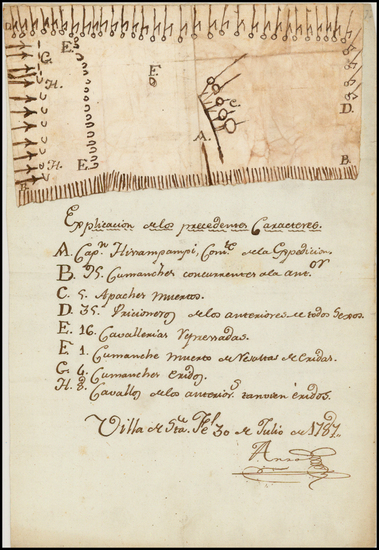 E.
G.
H.
F.
C.
A.
D.
H.
E.
B.
B.
Explicacion de los precedentes Caracteres.
A. Capn. Hisampampi, Comte. de la Expedicion
B. 95. Cumanches concurrentes a la antor.
C. 5. Apaches muertos.
D. 35. Pricioneros de los anteriores de todos Sexos.
E. 16. Cavallerias represadas.
E. 1. Cumanche muerto de resultas de eridas.
G. 4. Cumanches eridos.
H. 8. Cavallos de los anteriors. tanvien éridos.
Villa de Sta. Fe 30 de Julio de 1787.
Anza